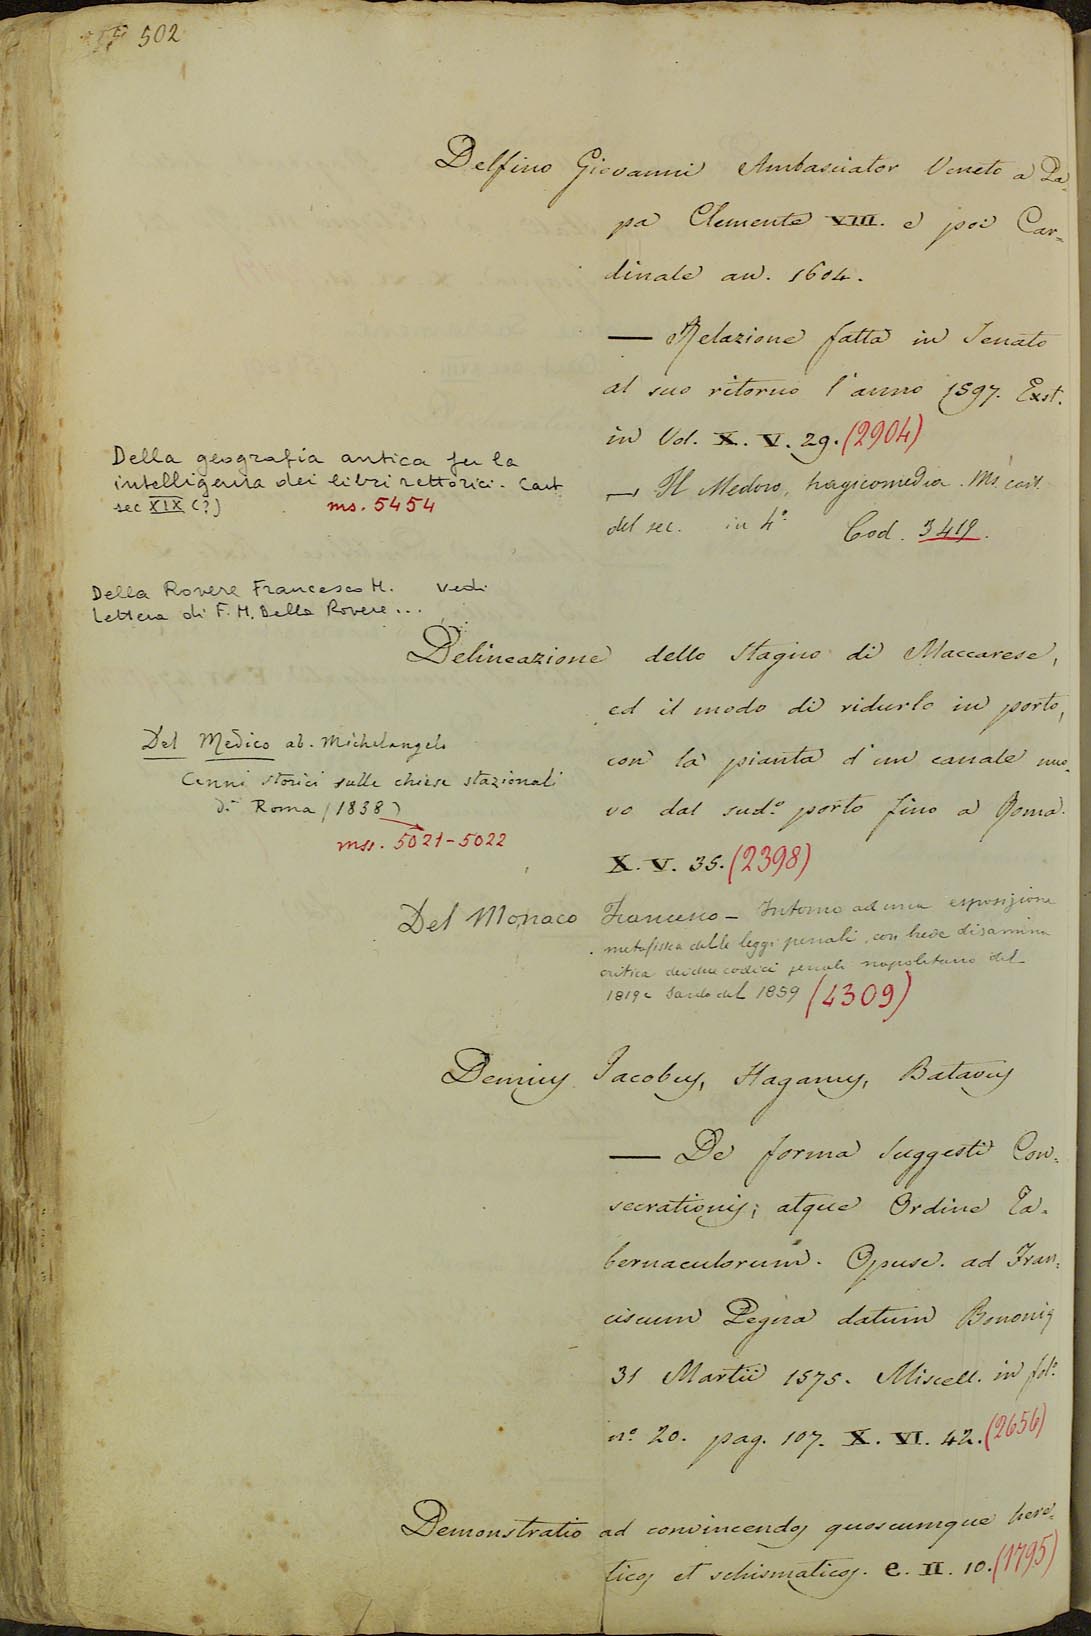 502
Delfino Giovanni Ambasciator Veneto a Pa-
pa Clemente VIII. e poi Car-
dinale an. 1604.
— Relazione fatta in Senato
al suo ritorno l'anno 1597. Exst.
in Vol. X. V. 29. (2904)
— Il Medoro, tragicomedia. Ms. cart.
del sec. in 4º. Cod. 3419.
Della geografia antica per la
intelligenza dei libri rettorici. Cart
sec XIX (?) ms. 5454
Della Rovere Francesco M. Vedi
Lettera di F. M. Della Rovere...
Delineazione dello Stagno di Maccarese,
ed il modo di ridurlo in porto,
con la pianta d'un canale nuo-
vo dal sudº porto fino a Roma.
X. V. 35. (2398)
Del Medico ab. Michelangelo
Cenni storici sulle chiese stazionali
di Roma (1838)
mss. 5021-5022
Del Monaco Francesco — Intorno ad una esposizione
metafisica delle leggi penali, con breve disamina
critica dei due codici penali napoletano del
1819 e Sardo del 1859 (4309)
Demius Jacobus, Haganus, Batavus
— De forma Suggesti Con-
secrationis; atque Ordine Ta-
bernaculorum. Opusc. ad Fran-
ciscum Pegna datum Bononię
31 Martii 1575. Miscell. in folº
nº 20. pag. 107. X. VI. 42. (2656)
Demonstratio ad convincendos quoscumque here-
ticos et schismaticos. e. II. 10. (1795)